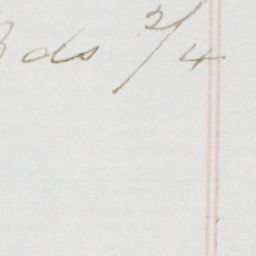 Bds 2/4